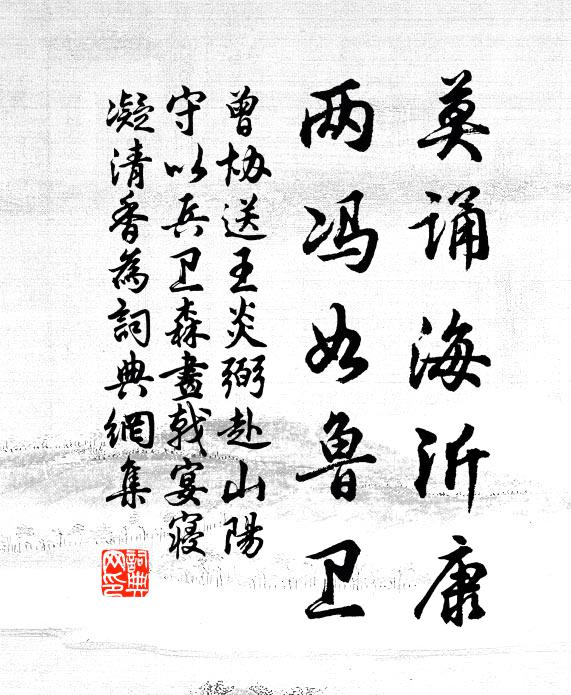 莫诵海沂康
两冯如鲁卫
曾协送王炎弼赴山陽
守以兵卫森畫戟宴寝
凝清香為詞典網集
詞典网印